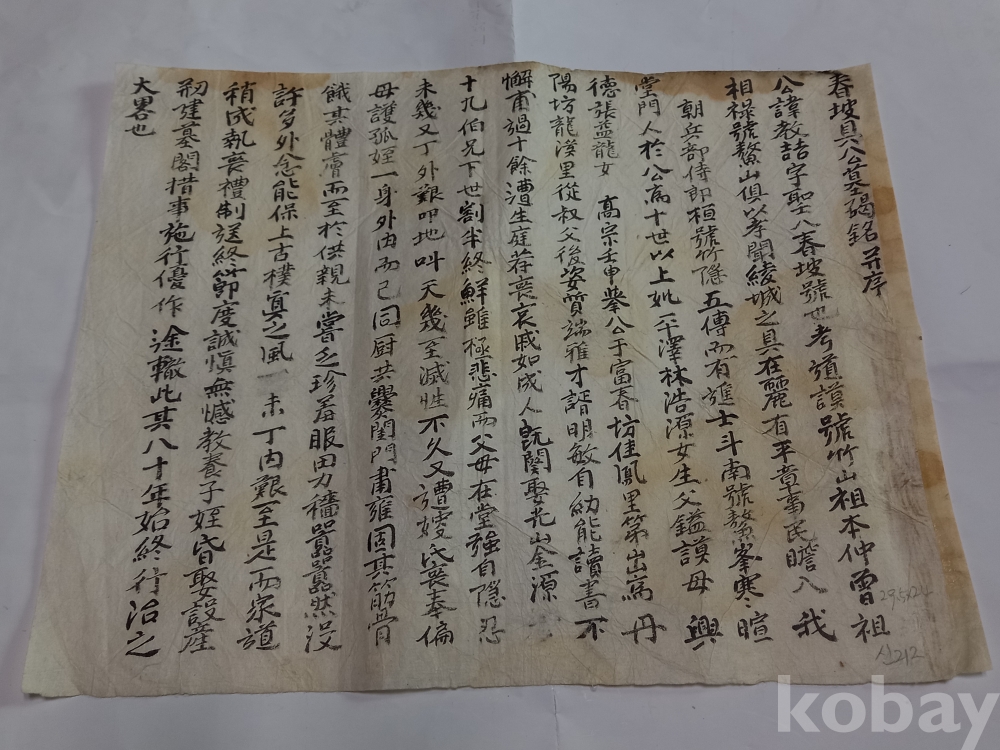 春坡具公墓碣銘 并序
公諱教喆字聖八春坡號也考道謨號竹山祖本仲曾祖
相祿號鰲山俱以孝聞綾城之具在麗有平章事民瞻入 我
朝兵部侍郎桓號竹隱五傳而有進士斗南號鰲峯寒暄
堂門人於公爲十世以上妣平澤林浩源女生父鎰謨母 興
德張益龍女 高宗壬申擧公于富春坊佳鳳里第出爲 丹
陽坊龍漢里從叔父後姿質端雅才諝明敏自幼能讀書不
懈甫過十餘遭生庭荐喪哀戚如成人旣闋娶光山金源
十九伯兄下世割半終鮮雖極悲痛而父母在堂強自隱忍
未幾又丁外艱叩地叫天幾至滅性不久又遭嫂氏喪奉偏
母護孤姪一身外內而已同厨共爨閨門肅雍固其筋骨
餓其體膚而至於供親未嘗乏珍羞服田力穡囂囂然沒
許多外念能保上古樸眞之風一未丁內艱至是而家道
稍成執喪禮制送終節度誠愼無憾教養子姪昏娶設產
刱建墓閣措事施行優作 途轍此其八十年始終行治之
大畧也
29.5x22.2
신212
kobay